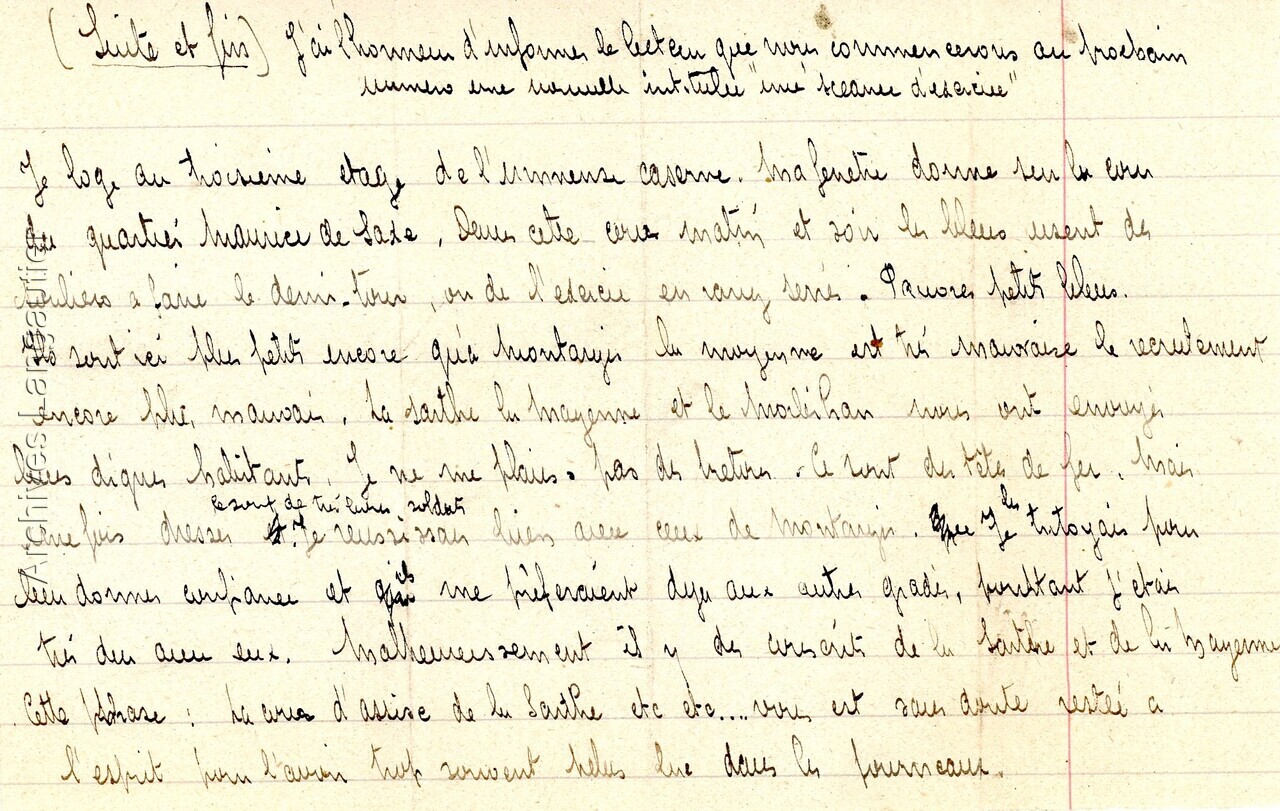 (Suite et fin) J'ai l'honneur d'informer le lecteur que nous commencerons au prochain
numero une nouvelle intitulée "une sceance d'exercice"
Je loge au troisieme etage de l'immense caserne. Ma fenetre donne sur la cour
du quartier Maurice de Saxe, Dans cette cour matin et soir les bleus usent des
souliers a faire le demi-tour, ou de l'exercice en rang serrés. Pauvres petits bleus.
Ils sont ici plus petits encore qu'a Montargis la moyenne est très mauvaise le recrutement
encore plus mauvais. La Sarthe la Mayenne et le Morbihan nous ont envoyés
leurs dignes habitants. Je ne me plains pas des bretons. Ce sont des têtes de fer. Mais
une fois dresses ce sont de très bons soldats. Je reussissais bien avec ceux de Montargis. Je les tutoyais pour
leur donner confiance et ils me préferaient deja aux autres gradés, pourtant j'etais
très dur avec eux. Malheureusement il y des conscrits de la Sarthe et de la Mayenne
Cette phrase : La cour d'assise de la Sarthe etc etc.... vous est sans doute restée a
l'esprit pour l'avoir trop souvent lue dans les journeaux.
Archives Largautier